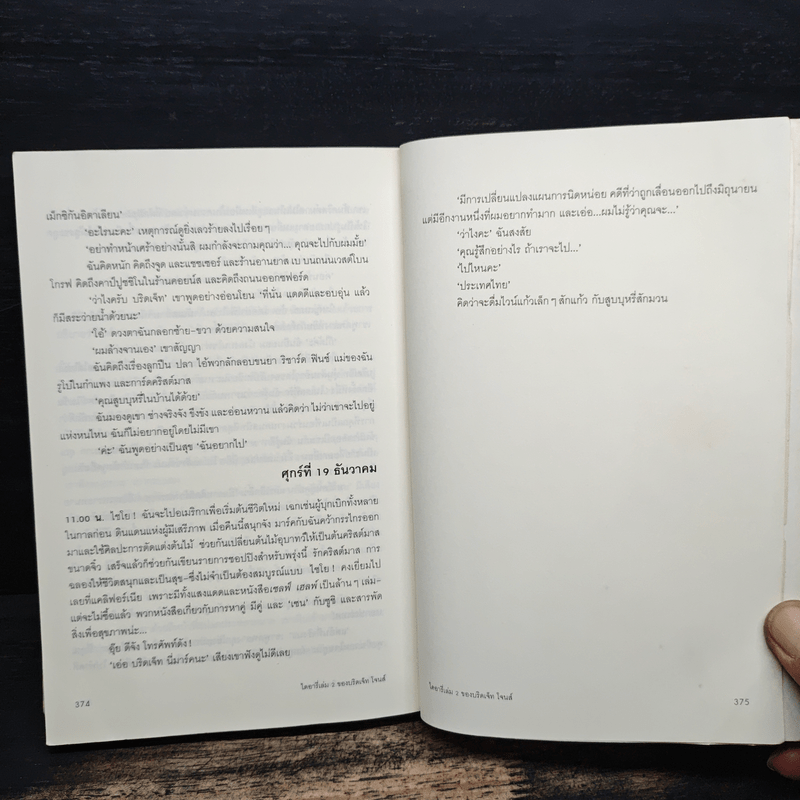 เม็กซิกันอิตาเลียน'
'อะไรนะคะ' เหตุการณ์ดูยิ่งเลวร้ายลงไปเรื่อยๆ
'อย่าทำหน้าเศร้าอย่างนั้นสิ ผมกำลังจะถามคุณว่า... คุณจะไปกับผมมั้ย'
ฉันคิดหนัก คิดถึงจูด และแชซเซอร์ และร้านอานยาส เบ บนถนนเวสต์โบน
โกรฟ คิดถึงคาปูชชิโนในร้านคอยน์ส และคิดถึงถนนออกซฟอร์ด
'ว่าไงครับ บริดเจ็ท' เขาพูดอย่างอ่อนโยน 'ที่นั่น แดดดีและอบอุ่น แล้ว
ก็มีสระว่ายน้ำด้วยนะ'
'โอ้' ดวงตาฉันกลอกซ้าย-ขวา ด้วยความสนใจ
'ผมล้างจานเอง' เขาสัญญา
ฉันคิดถึงเรื่องลูกปืน ปลา ไอ้พวกลักลอบขนยา ริชาร์ด ฟินช์ แม่ของฉัน
รูโบ๋ในกำแพง และการ์ดคริสต์มาส
'คุณสูบบุหรี่ในบ้านได้ด้วย'
ฉันมองดูเขา ช่างจริงจัง ขึงขัง และอ่อนหวาน แล้วคิดว่า ไม่ว่าเขาจะไปอยู่
แห่งหนไหน ฉันก็ไม่อยากอยู่โดยไม่มีเขา
'ค่ะ' ฉันพูดอย่างเป็นสุข 'ฉันอยากไป'
ศุกร์ที่ 19 ธันวาคม
11.00 น. ไชโย! ฉันจะไปอเมริกาเพื่อเริ่มต้นชีวิตใหม่ เฉกเช่นผู้บุกเบิกทั้งหลาย
ในกาลก่อน ดินแดนแห่งผู้มีเสรีภาพ เมื่อคืนนี้สนุกจัง มาร์คกับฉันคว้ากรรไกรออก
มาและใช้ศิลปะการตัดแต่งต้นไม้ ช่วยกันเปลี่ยนต้นไม้อุบาทว์ให้เป็นต้นคริสต์มาส
ขนาดจิ๋ว เสร็จแล้วก็ช่วยกันเขียนรายการชอปปิงสำหรับพรุ่งนี้ รักคริสต์มาส การ
ฉลองให้ชีวิตสนุกและเป็นสุข-ซึ่งไม่จำเป็นต้องสมบูรณ์แบบ ไชโย! คงเยี่ยมไป
เลยที่แคลิฟอร์เนีย เพราะมีทั้งแสงแดดและหนังสือเซลฟ์ เฮลฟ์ เป็นล้านๆ เล่ม-
แต่จะไม่ซื้อแล้ว พวกหนังสือเกี่ยวกับการหาคู่ มีคู่ และ 'เซน' กับซูชิ และสารพัด
สิ่งเพื่อสุขภาพน่ะ...
อุ๊ย ดีจัง โทรศัพท์ดัง!
'เอ่อ บริดเจ็ท นี่มาร์คนะ' เสียงเขาฟังดูไม่ดีเลย
ไดอารี่เล่ม 2 ของบริดเจ็ท โจนส์
374
'มีการเปลี่ยนแปลงแผนการนิดหน่อย คดีที่ว่าถูกเลื่อนออกไปถึงมิถุนายน
แต่มีอีกงานหนึ่งที่ผมอยากทำมาก และเอ่อ...ผมไม่รู้ว่าคุณจะ...'
'ว่าไงคะ' ฉันสงสัย
'คุณรู้สึกอย่างไร ถ้าเราจะไป...'
'ไปไหนคะ'
'ประเทศไทย'
คิดว่าจะดื่มไวน์แก้วเล็กๆ สักแก้ว กับสูบบุหรี่สักมวน
ไดอารี่เล่ม 2 ของบริดเจ็ท โจนส์
375